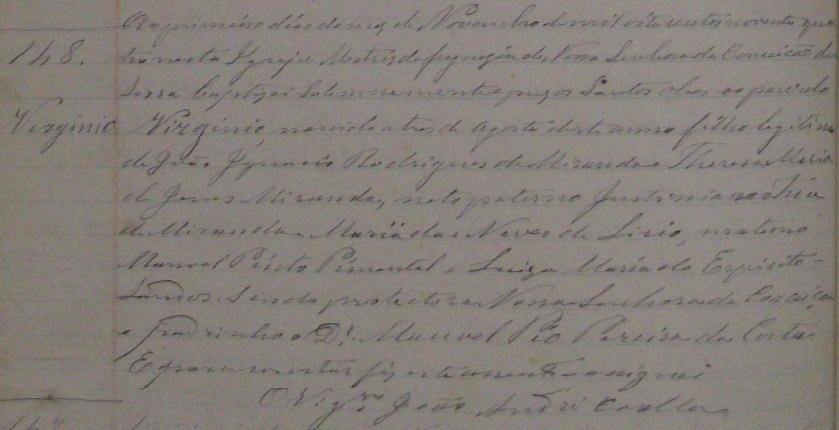 Ao primeiro dias do mez de Novembro de mil oito centos noventa qua
148.
tro nesta Igreja Matriz da freguezia de Nossa Senhora da Conceição da
Serra baptizei solemnemente e puz os Santos oleos ao parvulo
Virginio
Virginio, nascido a tres de Agosto deste anno filho legitimo
de João Ignacio Rodrigues de Miranda e Thereza Maria
de Jesus Miranda, neto paterno Justiniano
de Miranda e Maria das Neves de Lirio, materno
Manoel Pinto Pimentel e Luiza Maria do Espirito-
Santos. Sendo protectora Nossa Senhora da Conceição
e padrinho o Dr. Manoel Pio Pereira da Costa
E para constar fiz este assento e assignei
O Vigr.º João André Casella